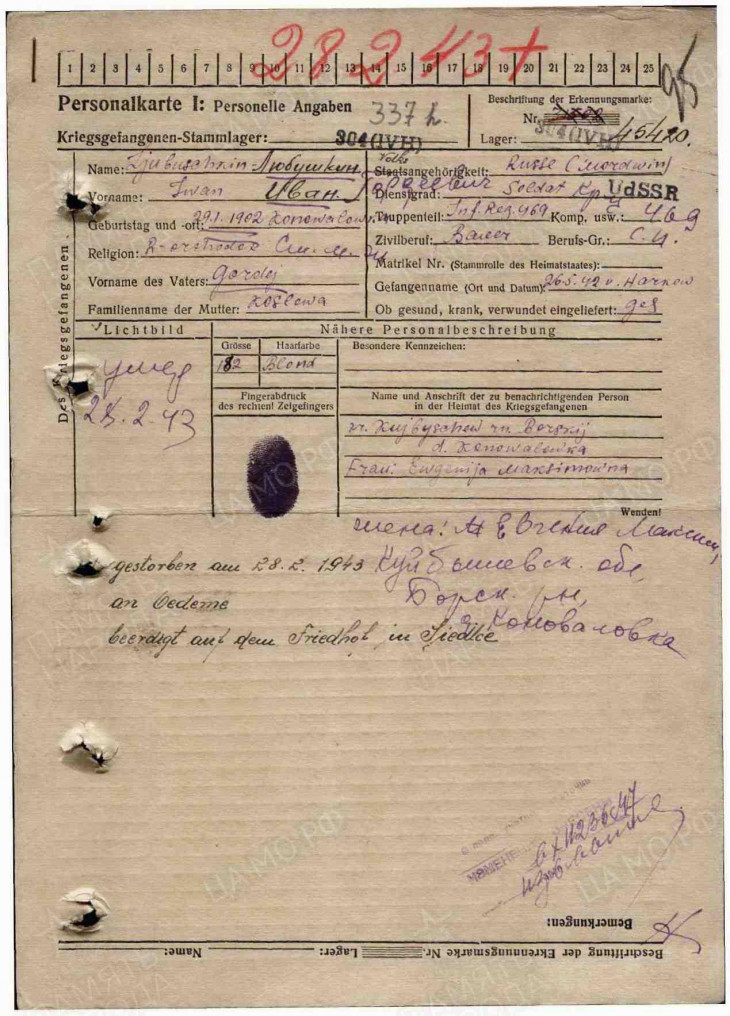 28 2 43 +
1 2 3 4 5 6 7 8 9 10 11 12 13 14 15 16 17 18 19 20 21 22 23 24 25
95
Personalkarte I: Personelle Angaben
337 h.
Beschriftung der Erkennungsmarke:
Nr. 45420.
Kriegsgefangenen-Stammlager: 304 (IVH)
Lager: 304 (IVH)
Des Kriegsgefangenen.
Name: Ljubuschkin Любушкин
Vorname: Iwan Иван
Geburtstag und -ort: 29.1.1902 Konowalowka
Religion:
Vorname des Vaters: Gordej
Familienname der Mutter: Koslowa
Staatsangehörigkeit: Russe (Mordwin)
Dienstgrad: Soldat UdSSR
Truppenteil: Inf. Reg. 469 Komp. usw.: 469
Zivilberuf: Bauer Berufs-Gr.:
Matrikel Nr. (Stammrolle des Heimatstaates):
Gefangenname (Ort und Datum): 26.5.42 v. Harkow
Ob gesund, krank, verwundet eingeliefert: ges
Lichtbild
умер
28.2.43
Nähere Personalbeschreibung
Grösse Haarfarbe
182 Blond
Besondere Kennzeichen:
Fingerabdruck
des rechten! Zeigefingers
Name und Anschrift der zu benachrichtigenden Person
in der Heimat des Kriegsgefangenen
Kujbyschew rn. Borskij
d. Konowalowka
Frau: Ewgenija Maksimowna
Wenden!
жена: Евгения Максим,
Куйбышевск. обл,
Борск. рн,
д. Коноваловка
gestorben am 28.2.1943
an Oedeme
beerdigt auf dem Friedhof in Siedlce
Bemerkungen:
Beschriftung der Erkennungsmarke Nr. Lager: Name: